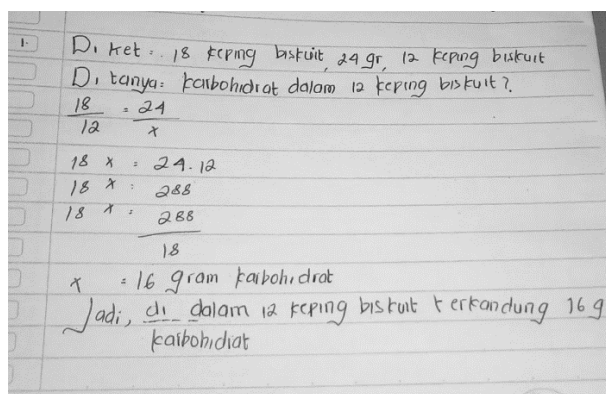 1. Di ket : 18 keping biskuit, 24 gr, 12 keping biskuit
Di tanya : karbohidrat dalam 12 keping biskuit ?
18 = 24
12 x
18 x = 24.12
18 x = 288
18 x = 288
18
x = 16 gram karbohidrat
Jadi, di dalam 12 keping biskuit terkandung 16 g
karbohidrat